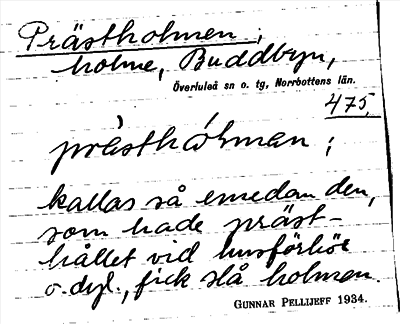 Prästholmen,
holme, Buddbyn,
Överluleå sn o. tg, Norrbottens län.
475.
pràsthólman ;
kallas så emedan den,
som hade präst-
hållet vid husförhör
o. dyl., fick slå holmen.
GUNNAR PELLIJEFF 1934.